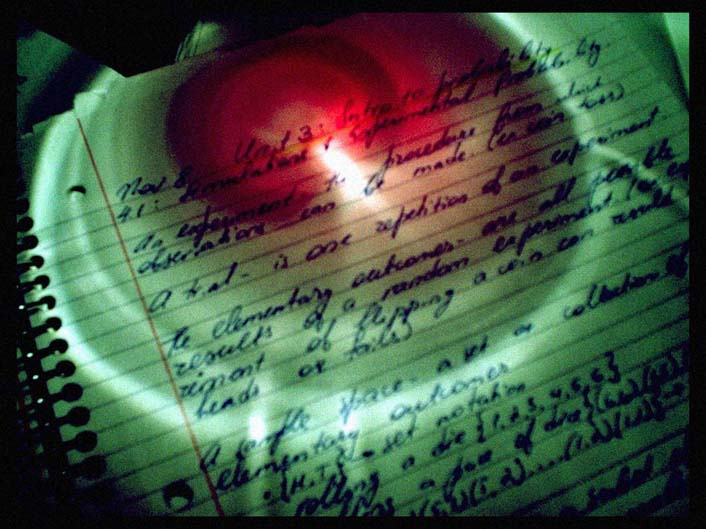 Unit 3: Intro to probability
Nov 8
4.1: Simulations & Experimental Probability.
An experiment - is procedure from which
observations can be made. (ex coin toss)
A trial - is one repetition of an experiment.
The elementary outcomes - are all possible
results of a random experiment (
riment of flipping a coin can result
heads or tails)
A sample space - a set or collection of
elementary outcomes
• {H, T} - set notation
rolling a die {1, 2, 3, 4, 5, 6}
a pair of die {(1,1)(1,2)